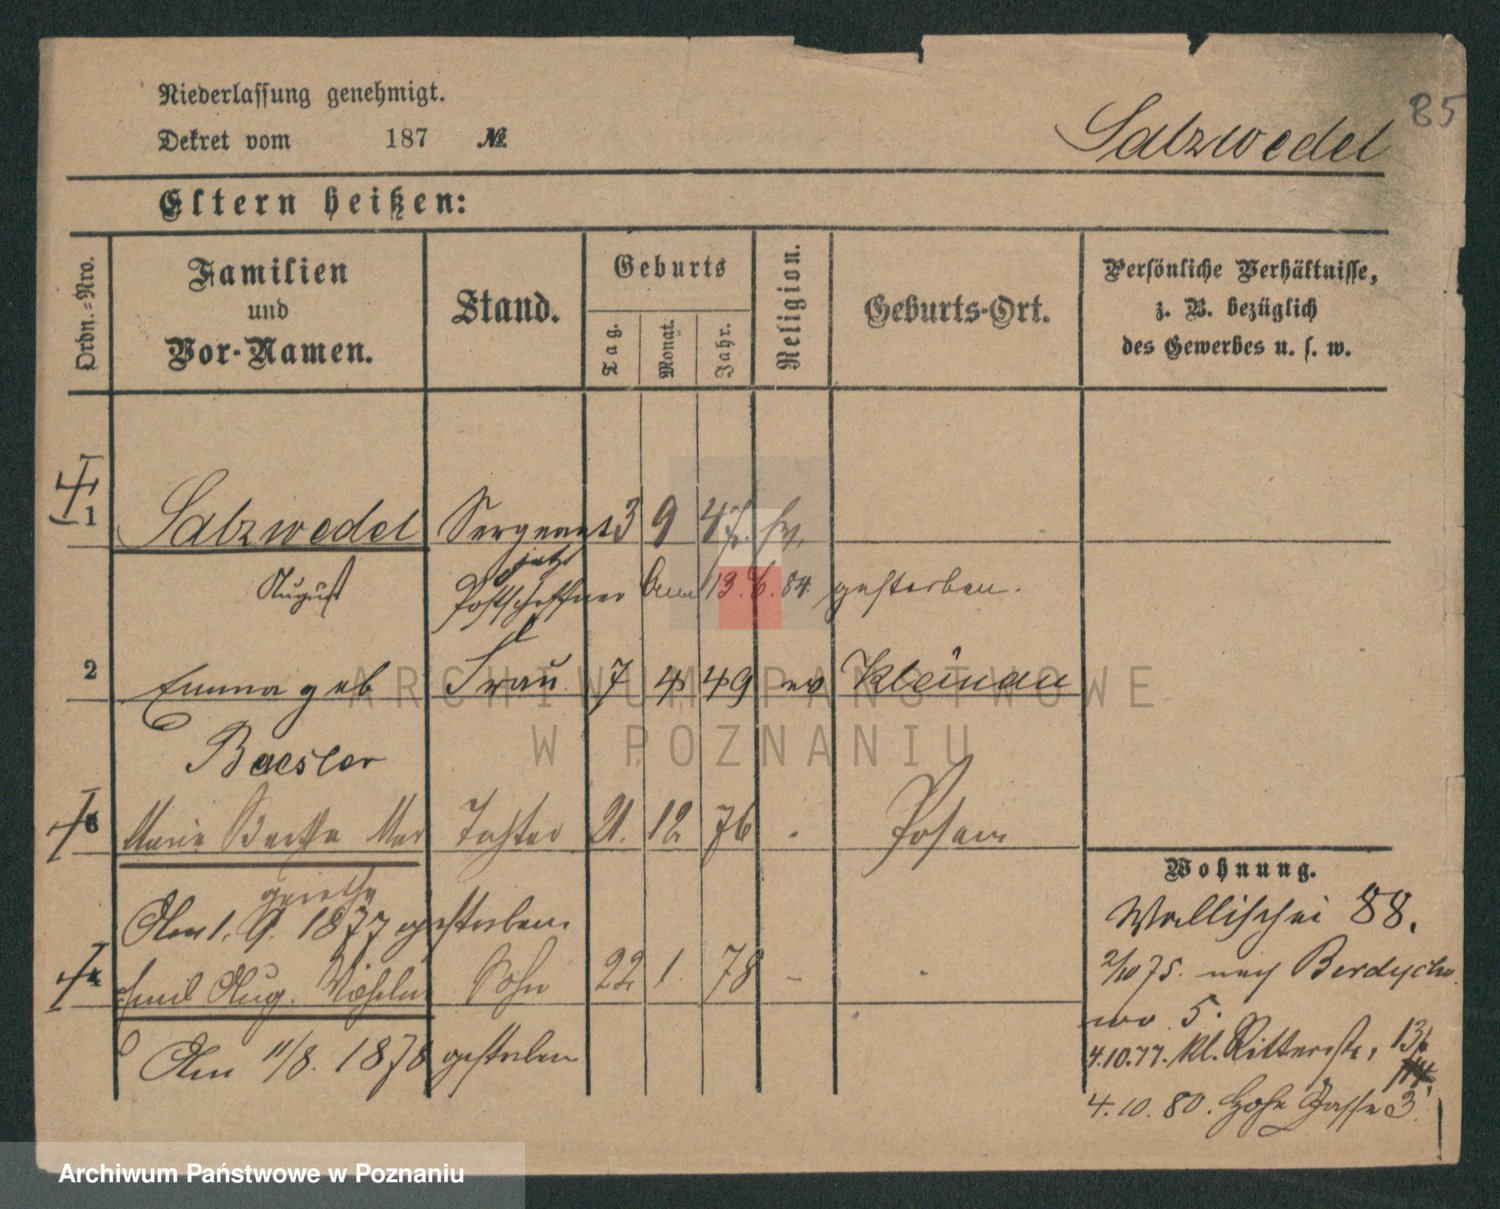 Niederlassung genehmigt.
Dekret vom 187 №
Salzwedel
85
Eltern heißen:
Ordn.-Nro.
Familien
und
Vor-Namen.
Stand.
Geburts
Tag.
Monat.
Jahr.
Religion.
Geburts-Ort.
Persönliche Verhältnisse,
z. B. bezüglich
des Gewerbes u. s. w.
1 Salzwedel Sergeant 3 9 47. ev.
jetzt
August Postschaffner Am 13.6.84. gestorben.
2 Emma geb Frau 7 4 49 ev Kleinau
Baesler
3 Marie Bertha Mar Tochter 21. 12 76 Posen
garetha
Am 1. 9. 1877 gestorben
4 Emil Aug. Wilhelm Sohn 22 1 78 -
Am 11/8. 1878 gestorben
Wohnung.
Wallischei 88.
2/10 75. nach Berdycho
wo 5.
4.10.77. kl. Ritterstr. 13
4.10.80. Hohe Gasse 3.
ARCHIWUM PAŃSTWOWE
W POZNANIU
Archiwum Państwowe w Poznaniu